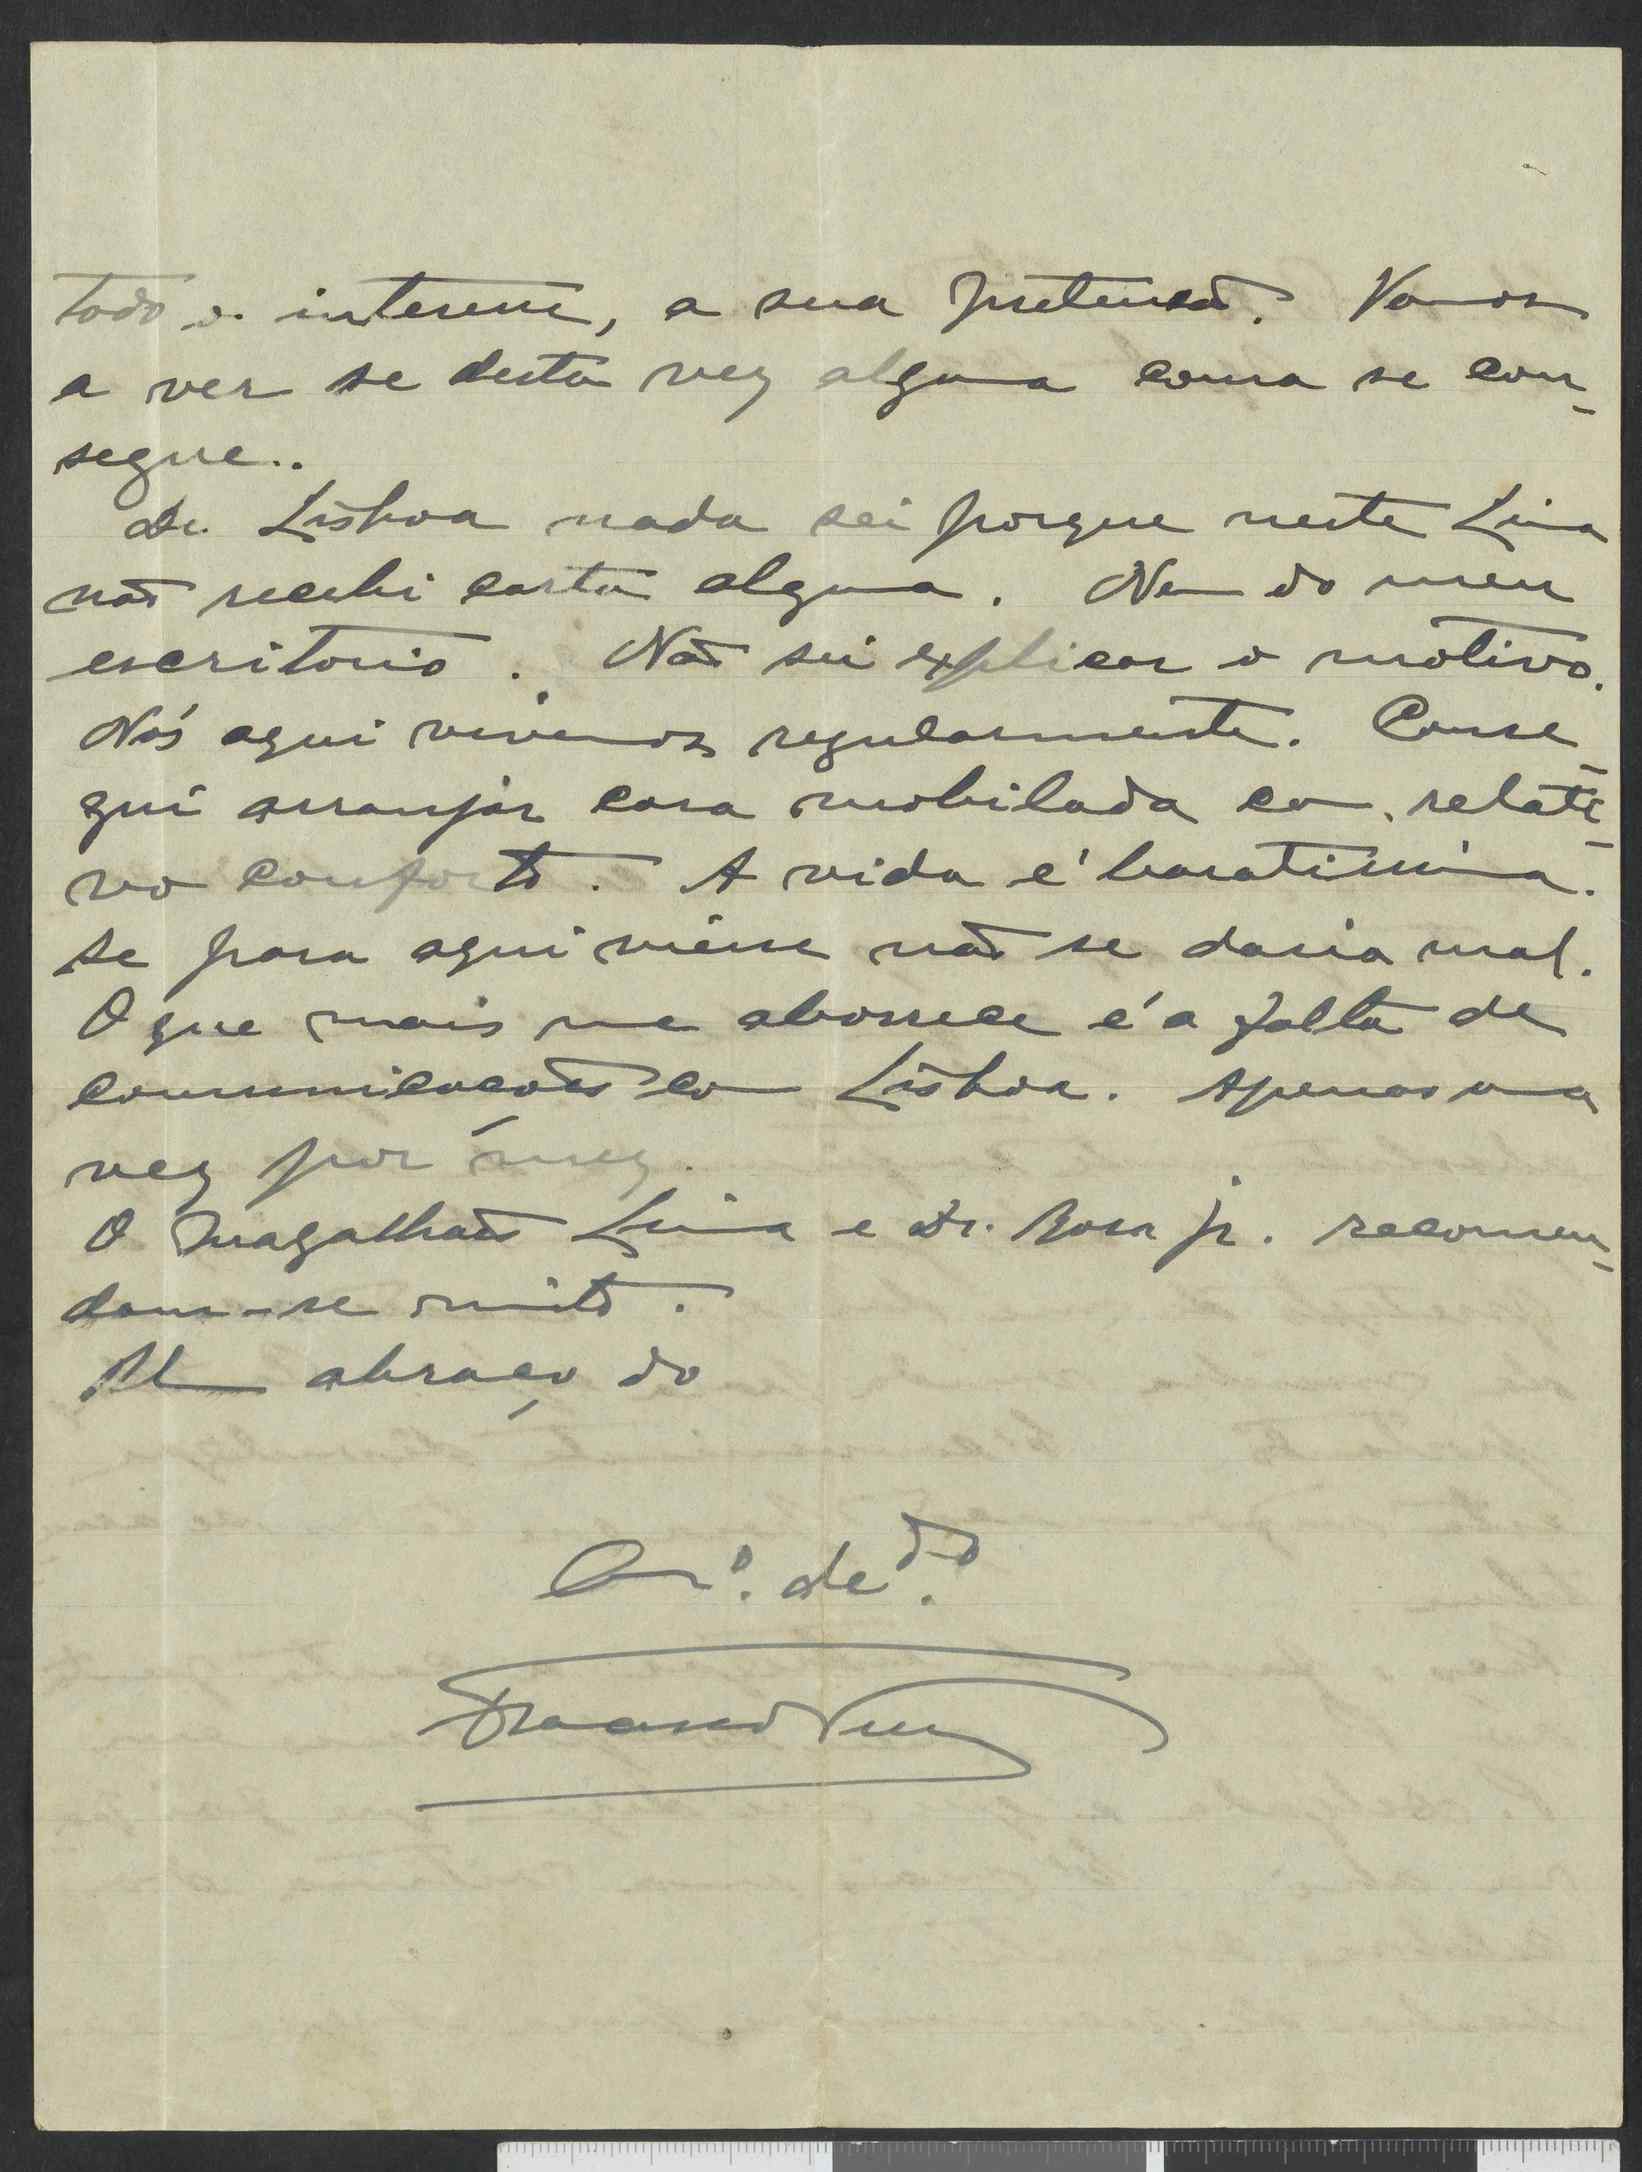 todo o interesse, a sua pretensão. Vamos
a ver se desta vez alguma cousa se con-
segue..
De Lisboa nada sei porque neste Lima
não recebi carta alguma. Nem do meu
escritorio. Não sei explicar o motivo.
Nós aqui vivemos regularmente. Conse-
gui arranjar casa mobilada com relati-
vo conforto. A vida é baratissima.
Se para aqui viésse não se daria mal.
O que mais me aborrece é a falta de
comunicações com Lisboa. Apenas uma
vez por mez.
O Magalhães Lima e Dr. Rosa jr. recomen-
dam-se muito.
Um abraço do
Am.º ded.do